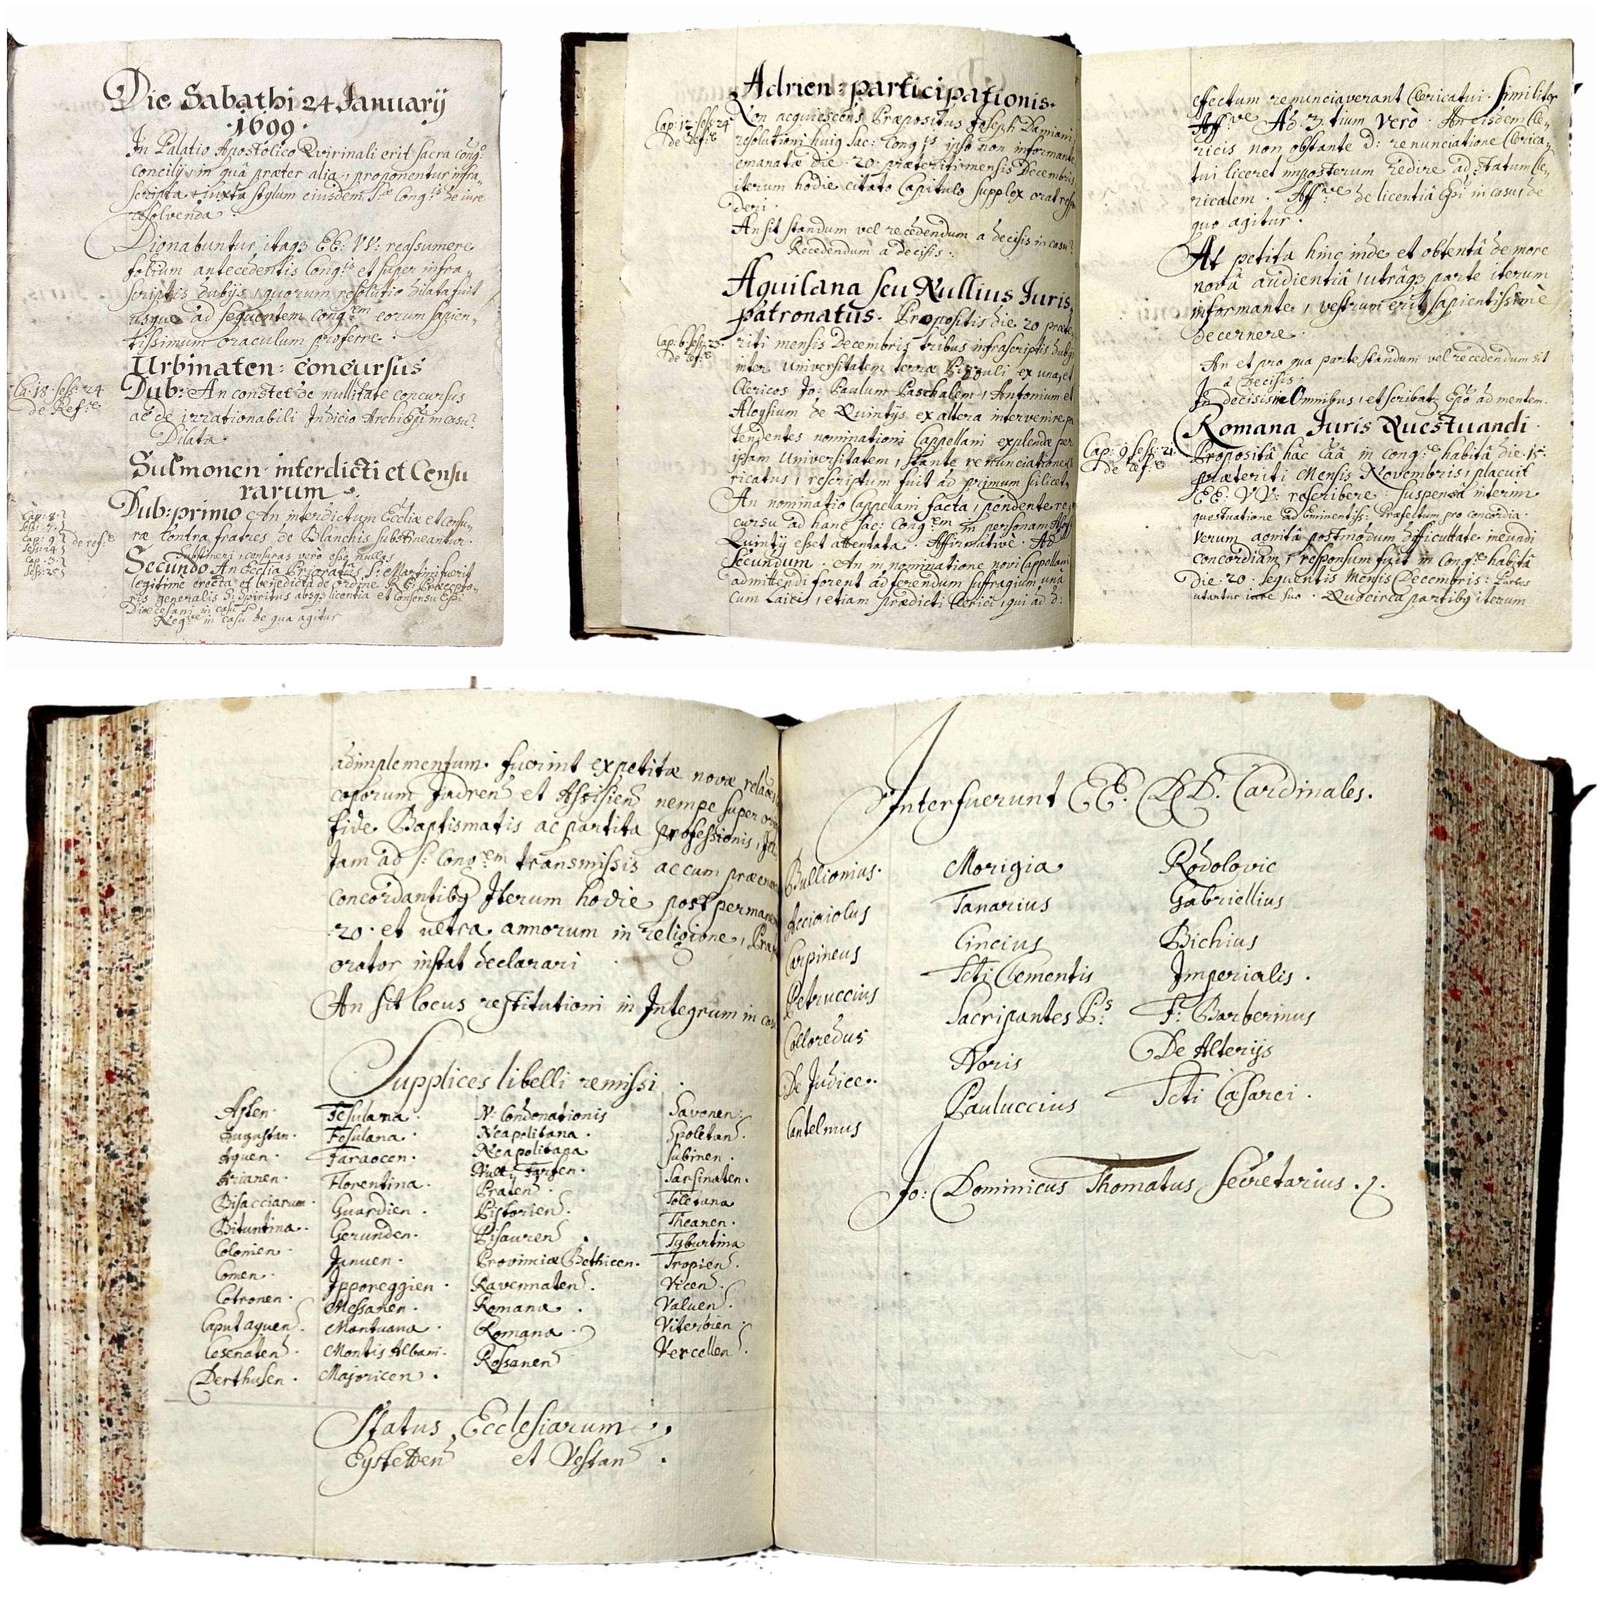 Die Sabathi 24 Januarij
·1699·
In Palatio Apostolico Quirinali erit sacra Cong.
Concilij in quâ præter alia, proponentur infra-
scripta iuxta stylum eiusdem S. Cong. de iure
resolvenda.
Dignabuntur itaq; EE: VV: reassumere
folium antecedentis Cong. et super infra-
scriptis dubijs, quorum resolutio dilata fuit
usque ad sequentem Cong.em eorum sapien-
tissimum oraculum proferre.
Urbinaten: concursus
Ca: 18 sess: 24
de Ref.e
Dub: An constet de nullitate concursus
ac de irrationabili Judicio Archiepi in casu
Dilata
Sulmonen· interdicti et Censu
rarum
Dub: primo An interdictum Ecclîæ et censu-
ræ contra fratres de Blanchis substineantur.
Cap: 8
Cap: 9
de ref:e
Secundo An Ecclîa Prioratus S: Martini fuerit
legitime erecta et benedicta de ordine
ris generalis S: Spiritus absq; licentia et consensu Epi
Diœcesani in casu
Neg.ve in casu de qua agitur
Adrien: participationis·
Cap: 12 sess: 24
de ref:e
Non acquiescens Præpositus Joseph Damiani
resolutioni huius Sac: Cong.is ipso non informante
emanatæ die ·20· præteriti mensis Decembris
iterum hodie citato Capitulo supplex orat
An sit standum vel recedendum a decisis in casu
Recedendum a decisis·
Aquilana seu Nullius Juris
patronatus· Propositis die 20 præte-
Cap: 6 sess: 25
de ref:e
riti mensis Decembris tribus infrascriptis dubijs
inter Universitatem terræ ex una, et
Clericos Jo: Paulum Paschalem, Antonium et
Aloysium de Quintijs ex altera intervenire
tendentes nominationi Cappellani explendæ per
ipsam Universitatem, stante renunciatione
ricatus, rescriptum fuit ad primum scilicet
An nominatio Cappellani facta, pendente re-
cursu ad hanc sac: Cong.em in personam
Quintij esset attentata· Affirmative· Ad
secundum· An in nominatione novi Cappellani
admittendi forent ad ferendum sufragium una
cum Laicis, etiam prædicti Clerici, qui ad d:
effectum renunciaverant Clericatui· Similiter
Aff.ve Ad 3.tium vero· An eisdem Cle-
ricis non obstante d: renunciatione Clerica-
tui liceret imposterum redire ad statum Cle-
ricalem· Aff.ve de licentiâ Epi in casu de
quo agitur·
At petita hinc inde et obtentâ de more
novâ audientiâ, utrâq; parte iterum
informante, vestrum erit sapientissimè
decernere·
An et pro qua parte standum vel recedendum sit
â Decisis·
In decisis in Omnibus, et scribat Epo ad mentem·
Romana Juris Questuandi·
Cap: 9 sess: 21
de ref:e
Propositâ hac Câa in cong.e habitâ die 15
præteriti Mensis Novembris, placuit
EE: VV: rescribere· Suspensâ interim
questuatione ad Eminentiss: Præfectum pro concordia·
Verum acritâ postmodum difficultate ineundi
concordiam, responsum fuit in Cong.e habitâ
die ·20· sequentis Mensis Decembris·
utantur iure suo· Quocirca partibq iterum
adimplementum· fuerint expetitæ novæ
et Assisien nempe super
fide Baptismatis ac partita professionis,
Jam ad s: Cong.em transmissis ac cum
concordantibq Iterum hodie post
·20· et ultra annorum in religione,
orator instat declarari
An sit locus restitutioni in Integrum in casu
Supplices libelli remissi·
Asten· Fesulana· N: Condonationis Savonen·
Augustan· Fesulana· Neapolitana· Spoletan·
Aquen· Neapolitana Sabinen·
Arianen· Florentina· Sarsinaten·
Bisacciarum· Guardien· Praten· Toletana
Bituntina· Gerunden· Pistorien· Theanen·
Colomen· Januen· Pisauren· Tyburtina
Comen· Ipporeggien· Provinciæ Bethicen· Tropien·
Cotronen· Messanen· Ravennaten· Vicen·
Caput aquen· Mantuana· Romana· Valuen·
Cesenaten· Montis Albani· Romana· Viterbien·
Derthusen· Majoricen· Rossanen Vercellen·
Status Ecclesiarum
Eystetten et Vestan·
Interfuerunt EE: DD: Cardinales·
Bullionius· Morigia Rodolovic
Acciaiolus Tanarius Gabriellius
Carpineus Cincius Bichius
Petruccius Scti Clementis Imperialis·
Colloredus Sacripantes P:s F: Barberinus
De Judice· Noris De Alterijs
Cantelmus Pauluccius Scti Cæsarei·
Jo: Dominicus Thomatus Secretarius·